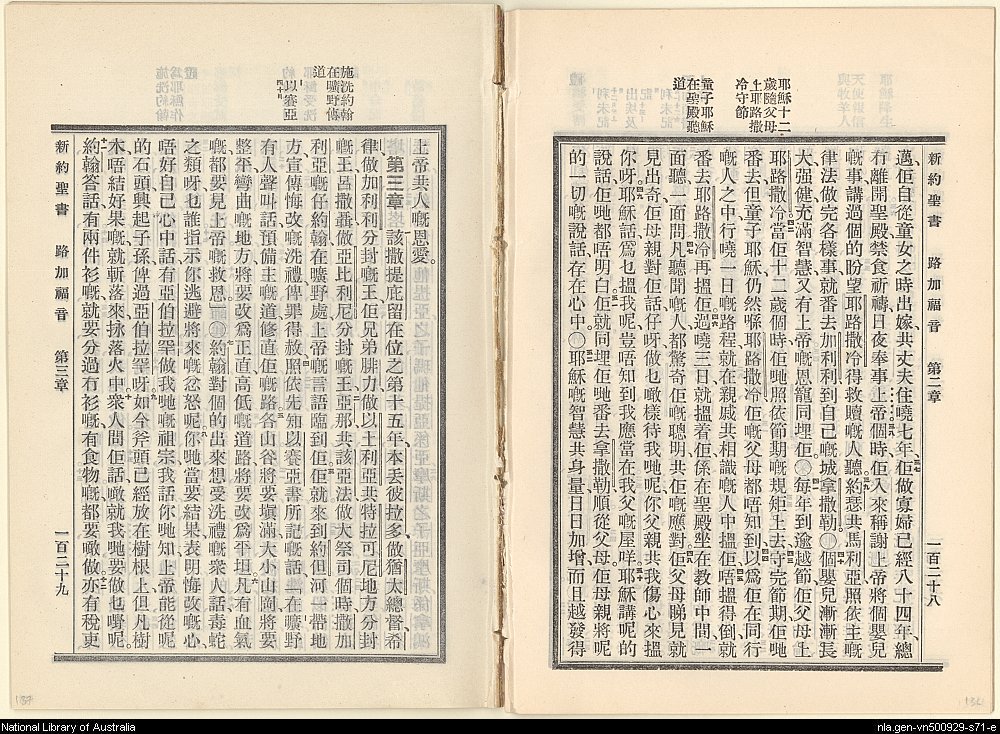 新約聖書　路加福音　第二章　一百二十八
耶穌十二
歲隨父母
上耶路撒
冷守節
童子耶穌
在聖殿聽
道
邁佢自從童女之時出嫁共丈夫住曉七年佢做寡婦已經八十四年總
冇離開聖殿禁食祈禱日夜奉事上帝個時佢入來稱謝上帝將個嬰兒
嘅事講過個的盼望耶路撒冷得救贖嘅人聽約瑟共馬利亞照依主嘅
律法做完各樣事就番去加利利到自己嘅城拿撒勒〇個嬰兒漸漸長
大强健充滿智慧又有上帝嘅恩寵同埋佢〇每年到逾越節佢父母上
耶路撒冷當佢十二歲個時佢哋照依節期嘅規矩上去守完節期佢哋
番去但童子耶穌仍然喺耶路撒冷佢嘅父母都唔知到以爲佢在同行
嘅人之中行曉一日嘅路程就在親戚共相識嘅人中搵佢唔搵得倒就
番去耶路撒冷再搵佢過曉三日就搵着佢係在聖殿坐在教師中間一
面聽一面問凡聽聞嘅人都驚奇佢嘅聰明共佢嘅應對佢父母睇見就
見出奇佢母親對佢話仔呀做乜噉樣待我哋呢你父親共我傷心來搵
你呀耶穌話爲乜搵我呢豈唔知到我應當在我父嘅屋咩耶穌講呢的
說話佢哋都唔明白佢就同埋佢哋番去拿撒勒順從父母佢母親將呢
的一切嘅說話存在心中〇耶穌嘅智慧共身量日日加增而且越發得
施洗約翰
在曠野傳
道
以賽亞
四十章
上帝共人嘅恩愛。
第三章 該撒提庇留在位之第十五年本丟彼拉多做猶太總督希
律做加利利分封嘅王佢兄弟腓力做以土利亞共特拉可尼地方分封
嘅王呂撒聶做亞比利尼分封嘅王亞那共該亞法做大祭司個時撒加
利亞嘅仔約翰在曠野處上帝嘅言語臨到佢佢就來到約但河一帶地
方宣傳悔改嘅洗禮俾罪得赦照依先知以賽亞書所記嘅話在曠野
有人聲叫話預備主嘅道修直佢嘅路各山谷將要塡滿大小山岡將要
整平彎曲嘅地方將要改爲正直高低嘅道路將要改爲平坦凡有血氣
嘅都要見上帝嘅救恩〇約翰對個的出來想受洗禮嘅衆人話毒蛇
之類呀乜誰指示你逃避將來嘅忿怒呢你哋當要結果表明悔改嘅心
唔好自己心中話有亞伯拉罕做我哋嘅祖宗我話你哋知上帝能從呢
的石頭興起子孫俾過亞伯拉罕呀如今斧頭已經放在樹根上但凡樹
木唔結好果嘅就斬落來揼落火中衆人問佢話噉就我哋要做乜嘢呢。
約翰答話有兩件衫嘅就要分過冇衫嘅有食物嘅都要噉做亦有稅吏
新約聖書　路加福音　第三章　一百二十九
National Library of Australia
nla.gen-vn500929-s71-e